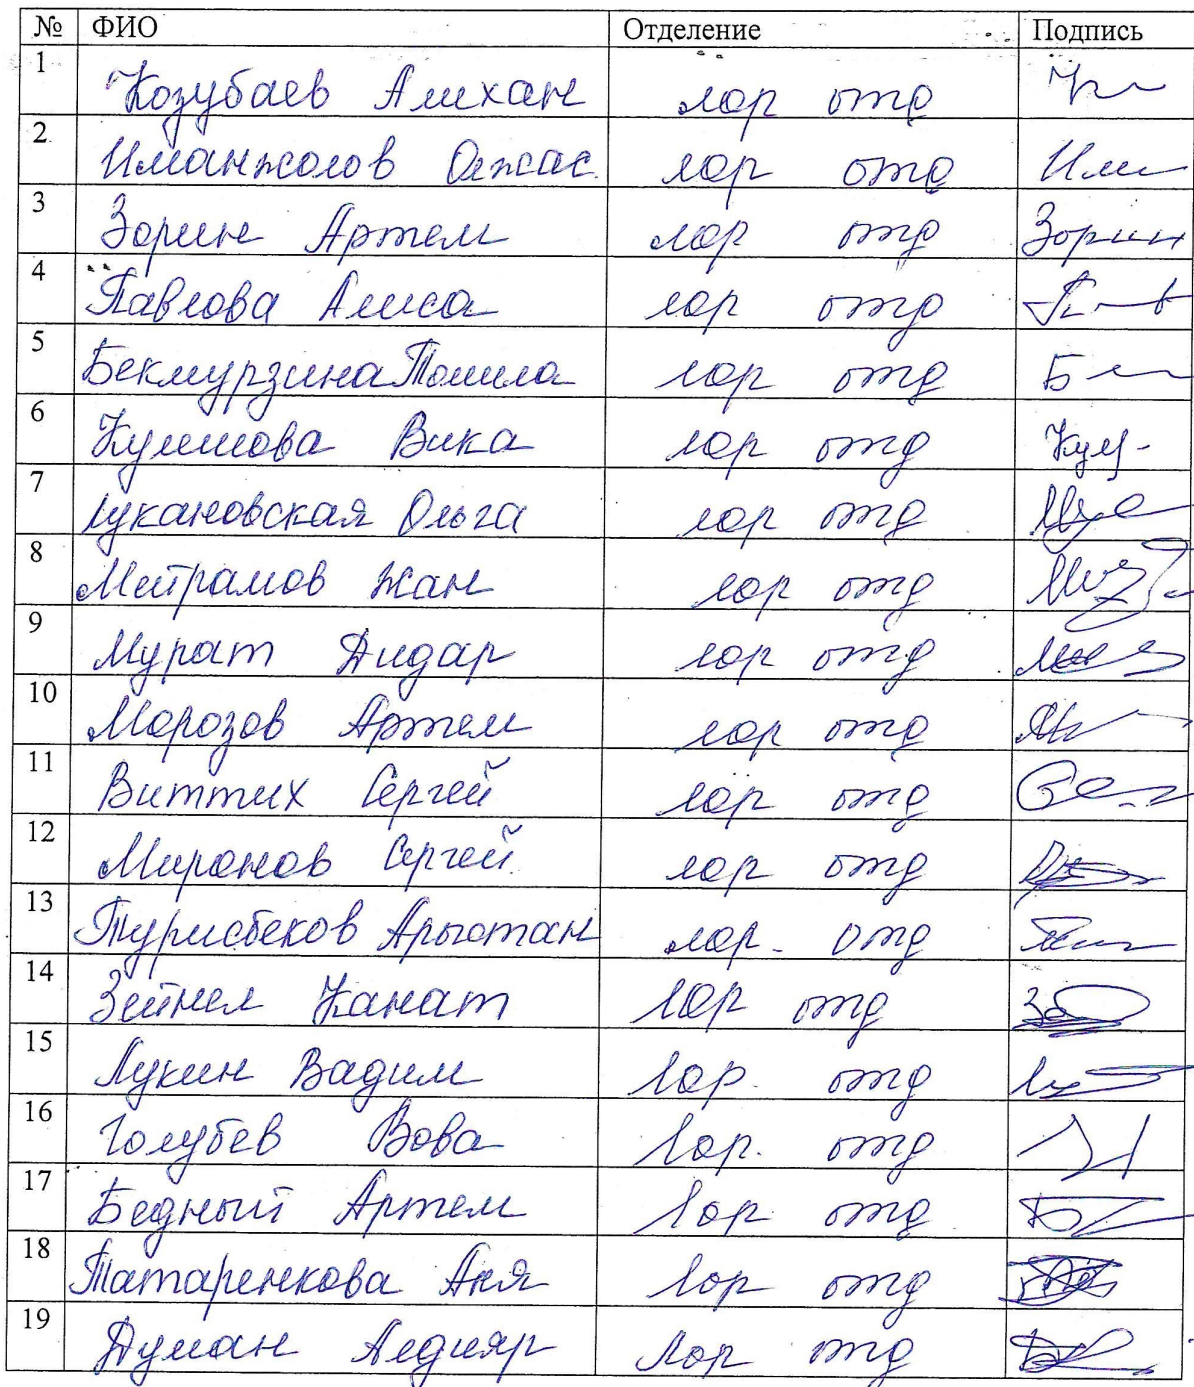 № ФИО Отделение Подпись
1 Козубаев Алихан лор отд
2 Иманжолов Олжас лор отд Им
3 Зорин Артем лор отд Зорин
4 Павлова Алиса лор отд
5 Бекмурзина Томила лор отд Б
6 Кулешова Вика лор отд Кул
7 Лукановская Ольга лор отд
8 Мейрамов Жан лор отд
9 Мурат Дидар лор отд
10 Морозов Артем лор отд
11 Виттих Сергей лор отд
12 Миронов Сергей лор отд
13 Турисбеков Арыстан лор. отд
14 Зейнел Канат лор отд
15 Лукин Вадим лор. отд
16 Голубев Вова Лор. отд
17 Бедный Артем Лор отд
18 Татаренкова Аня Лор отд
19 Думан Алдияр Лор отд